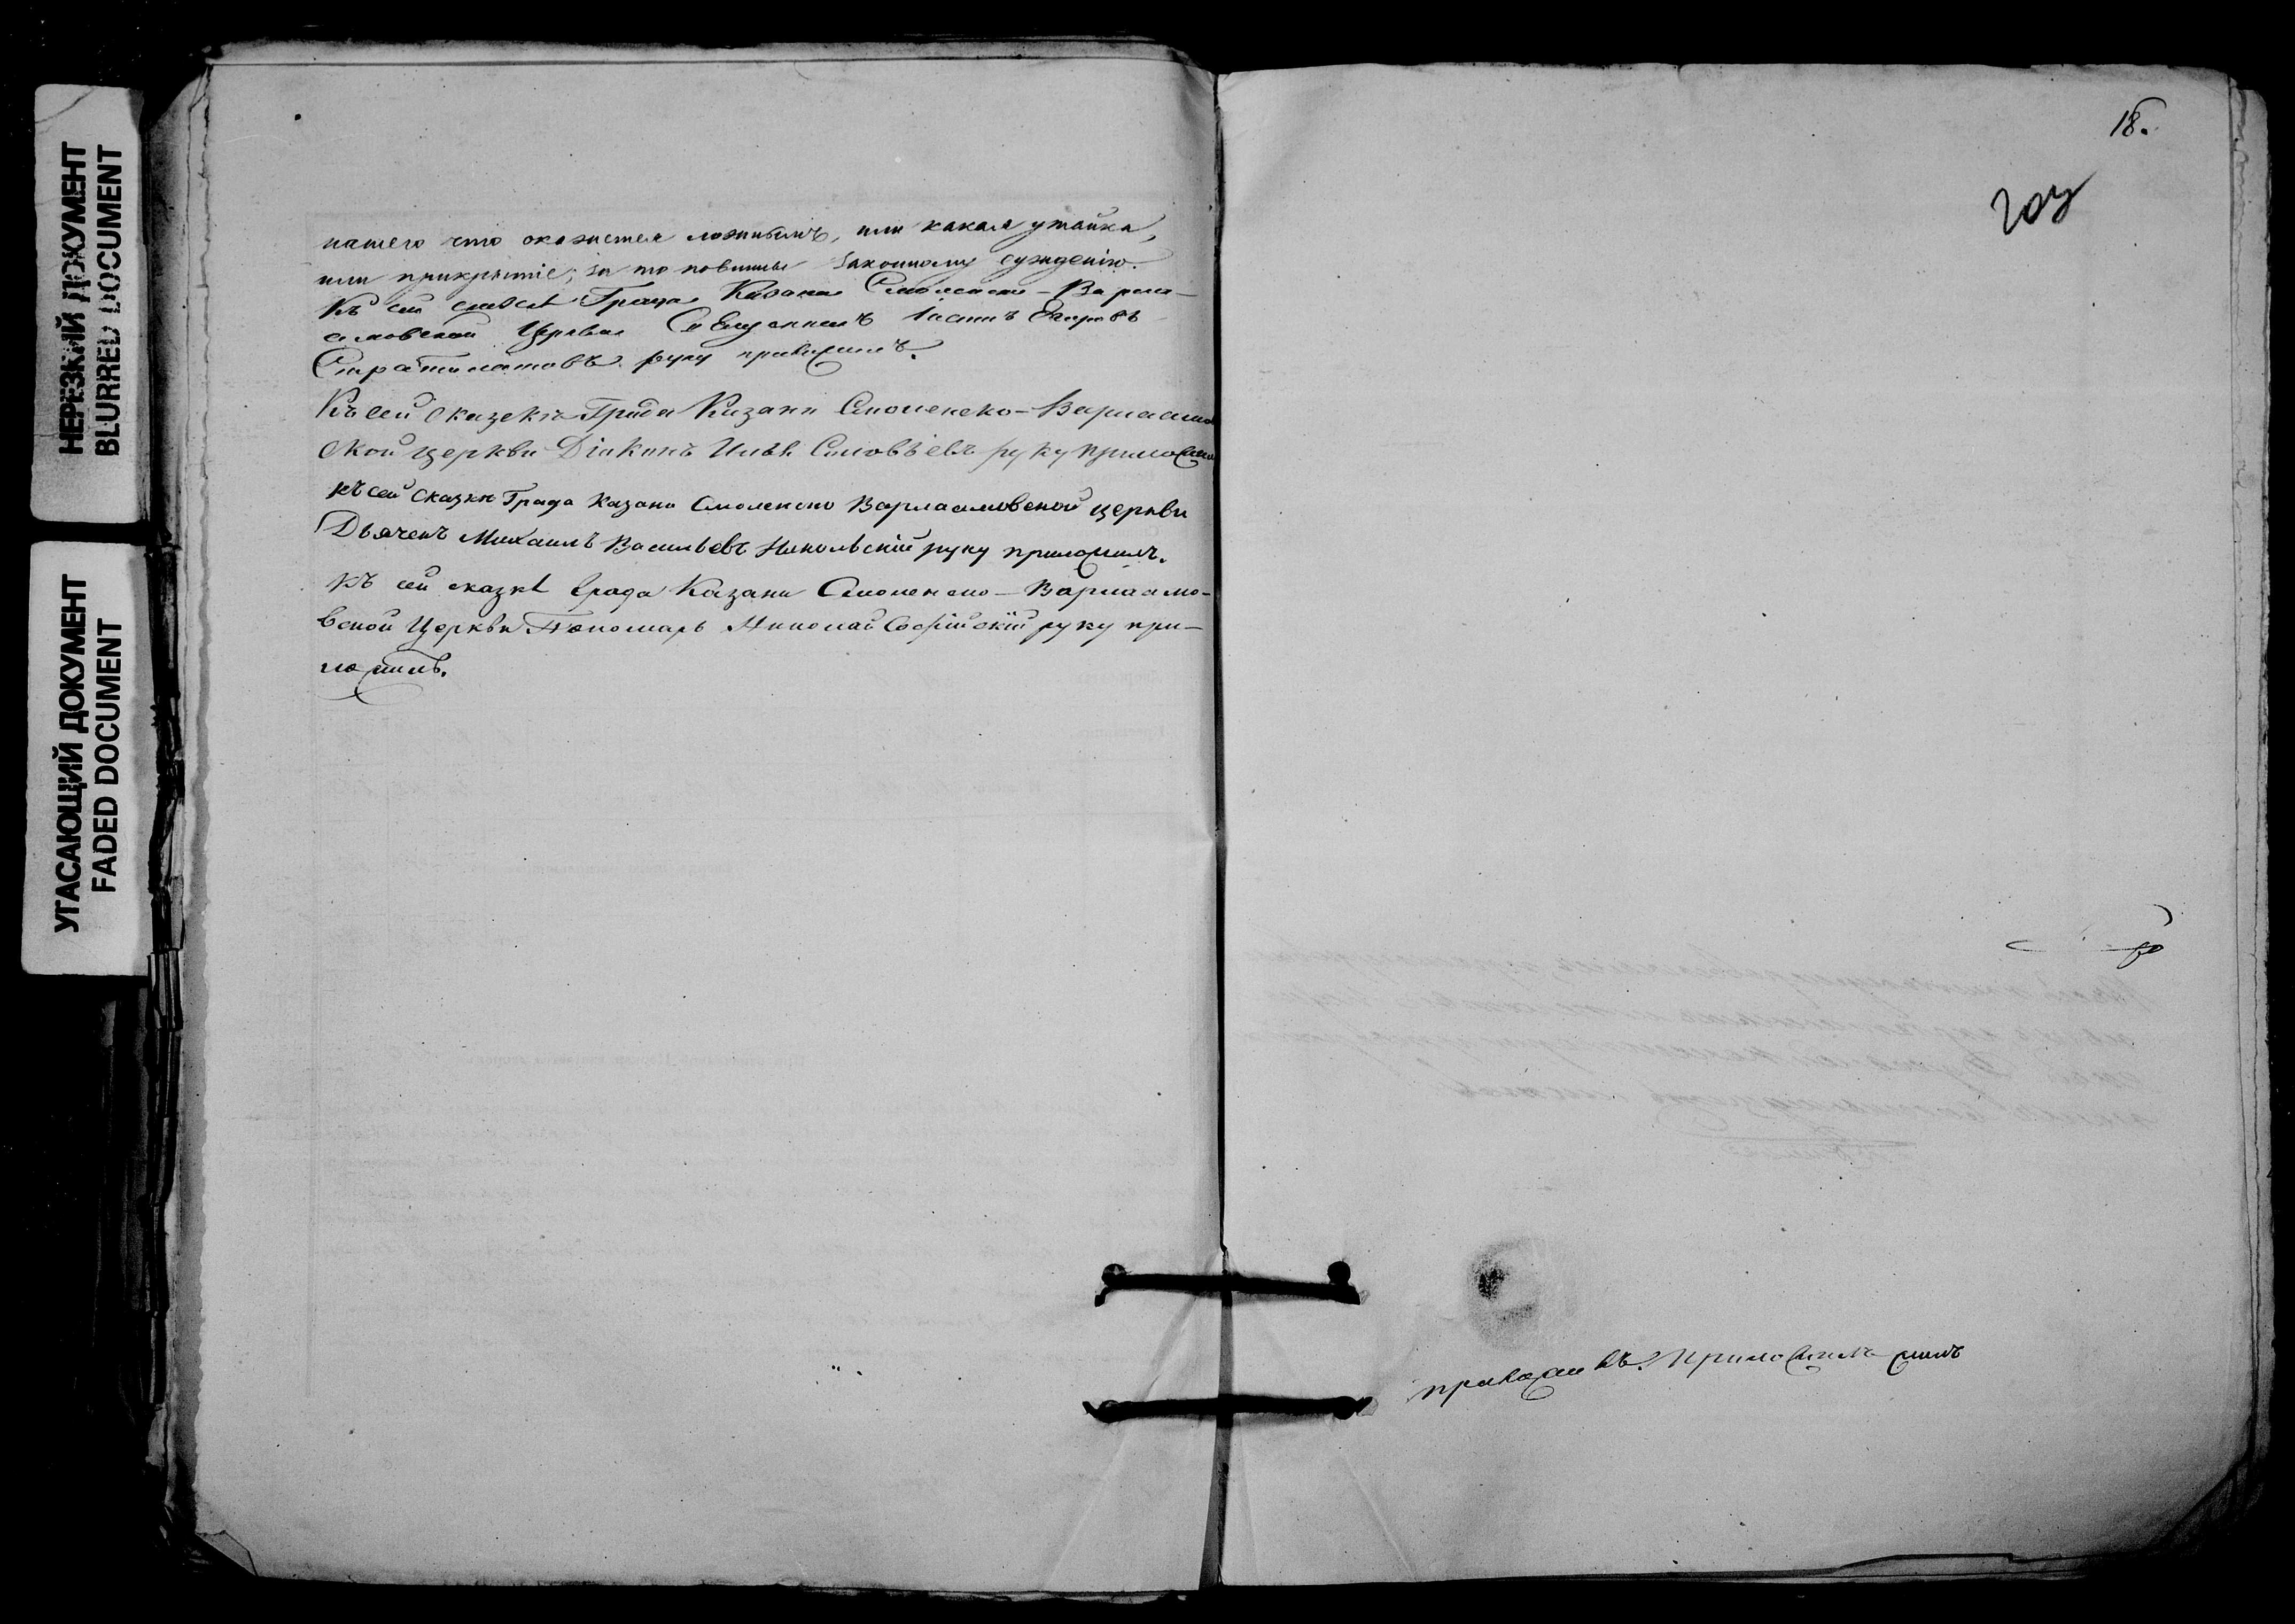 НЕРЕЗКИЙ ДОКУМЕНТ
BLURRED DOCUMENT
УГАСАЮЩИЙ ДОКУМЕНТ
FADED DOCUMENT
нашего что окажется ложнымъ, или какая утайка,
или прикрытіе, за то повинны законному сужденію.
Къ сей сказкѣ Града Казани Смоленско-Варла-
амовской Церкви Священникъ
Стратилатовъ руку приложилъ.
Къ сей сказкѣ Града Казани Смоленско-Варлаамо
ской церкви Діаконъ Илья Соловьевъ руку приложилъ
къ сей сказкѣ Града Казани Смоленско Варлаамовской церкви
Дьячекъ Михаилъ Васильевъ Никольскій руку приложилъ.
къ сей сказкѣ Града Казани Смоленско-Варлаамо-
вской Церкви Пономарь Николай Софійскій руку при-
ложилъ.
18.
приложилъ